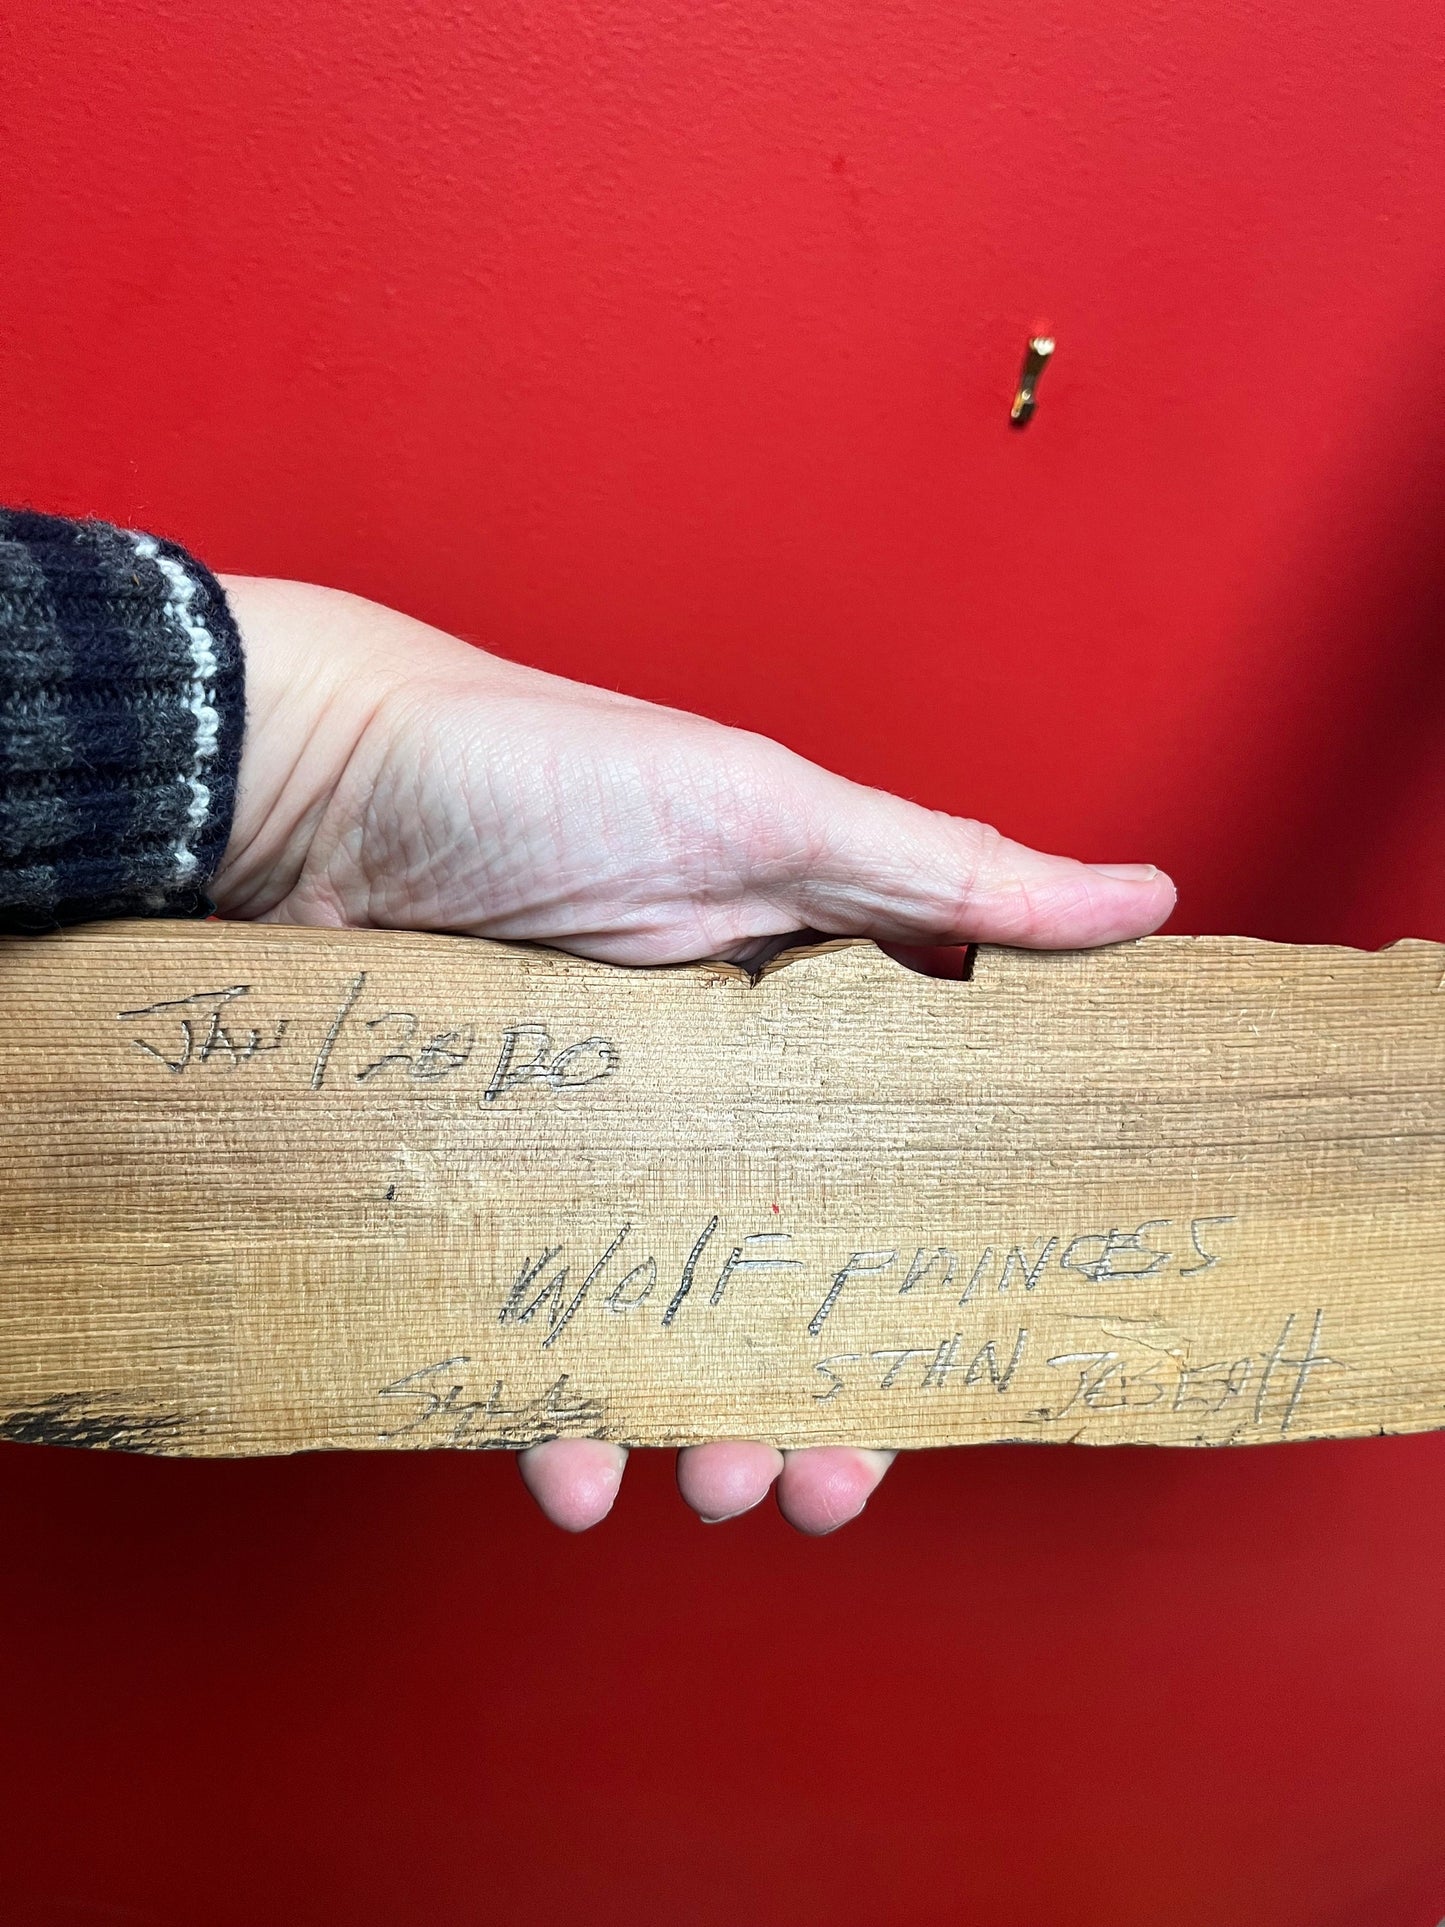 JAN/2020
WOLF PRINCESS
STAN JOSEPH